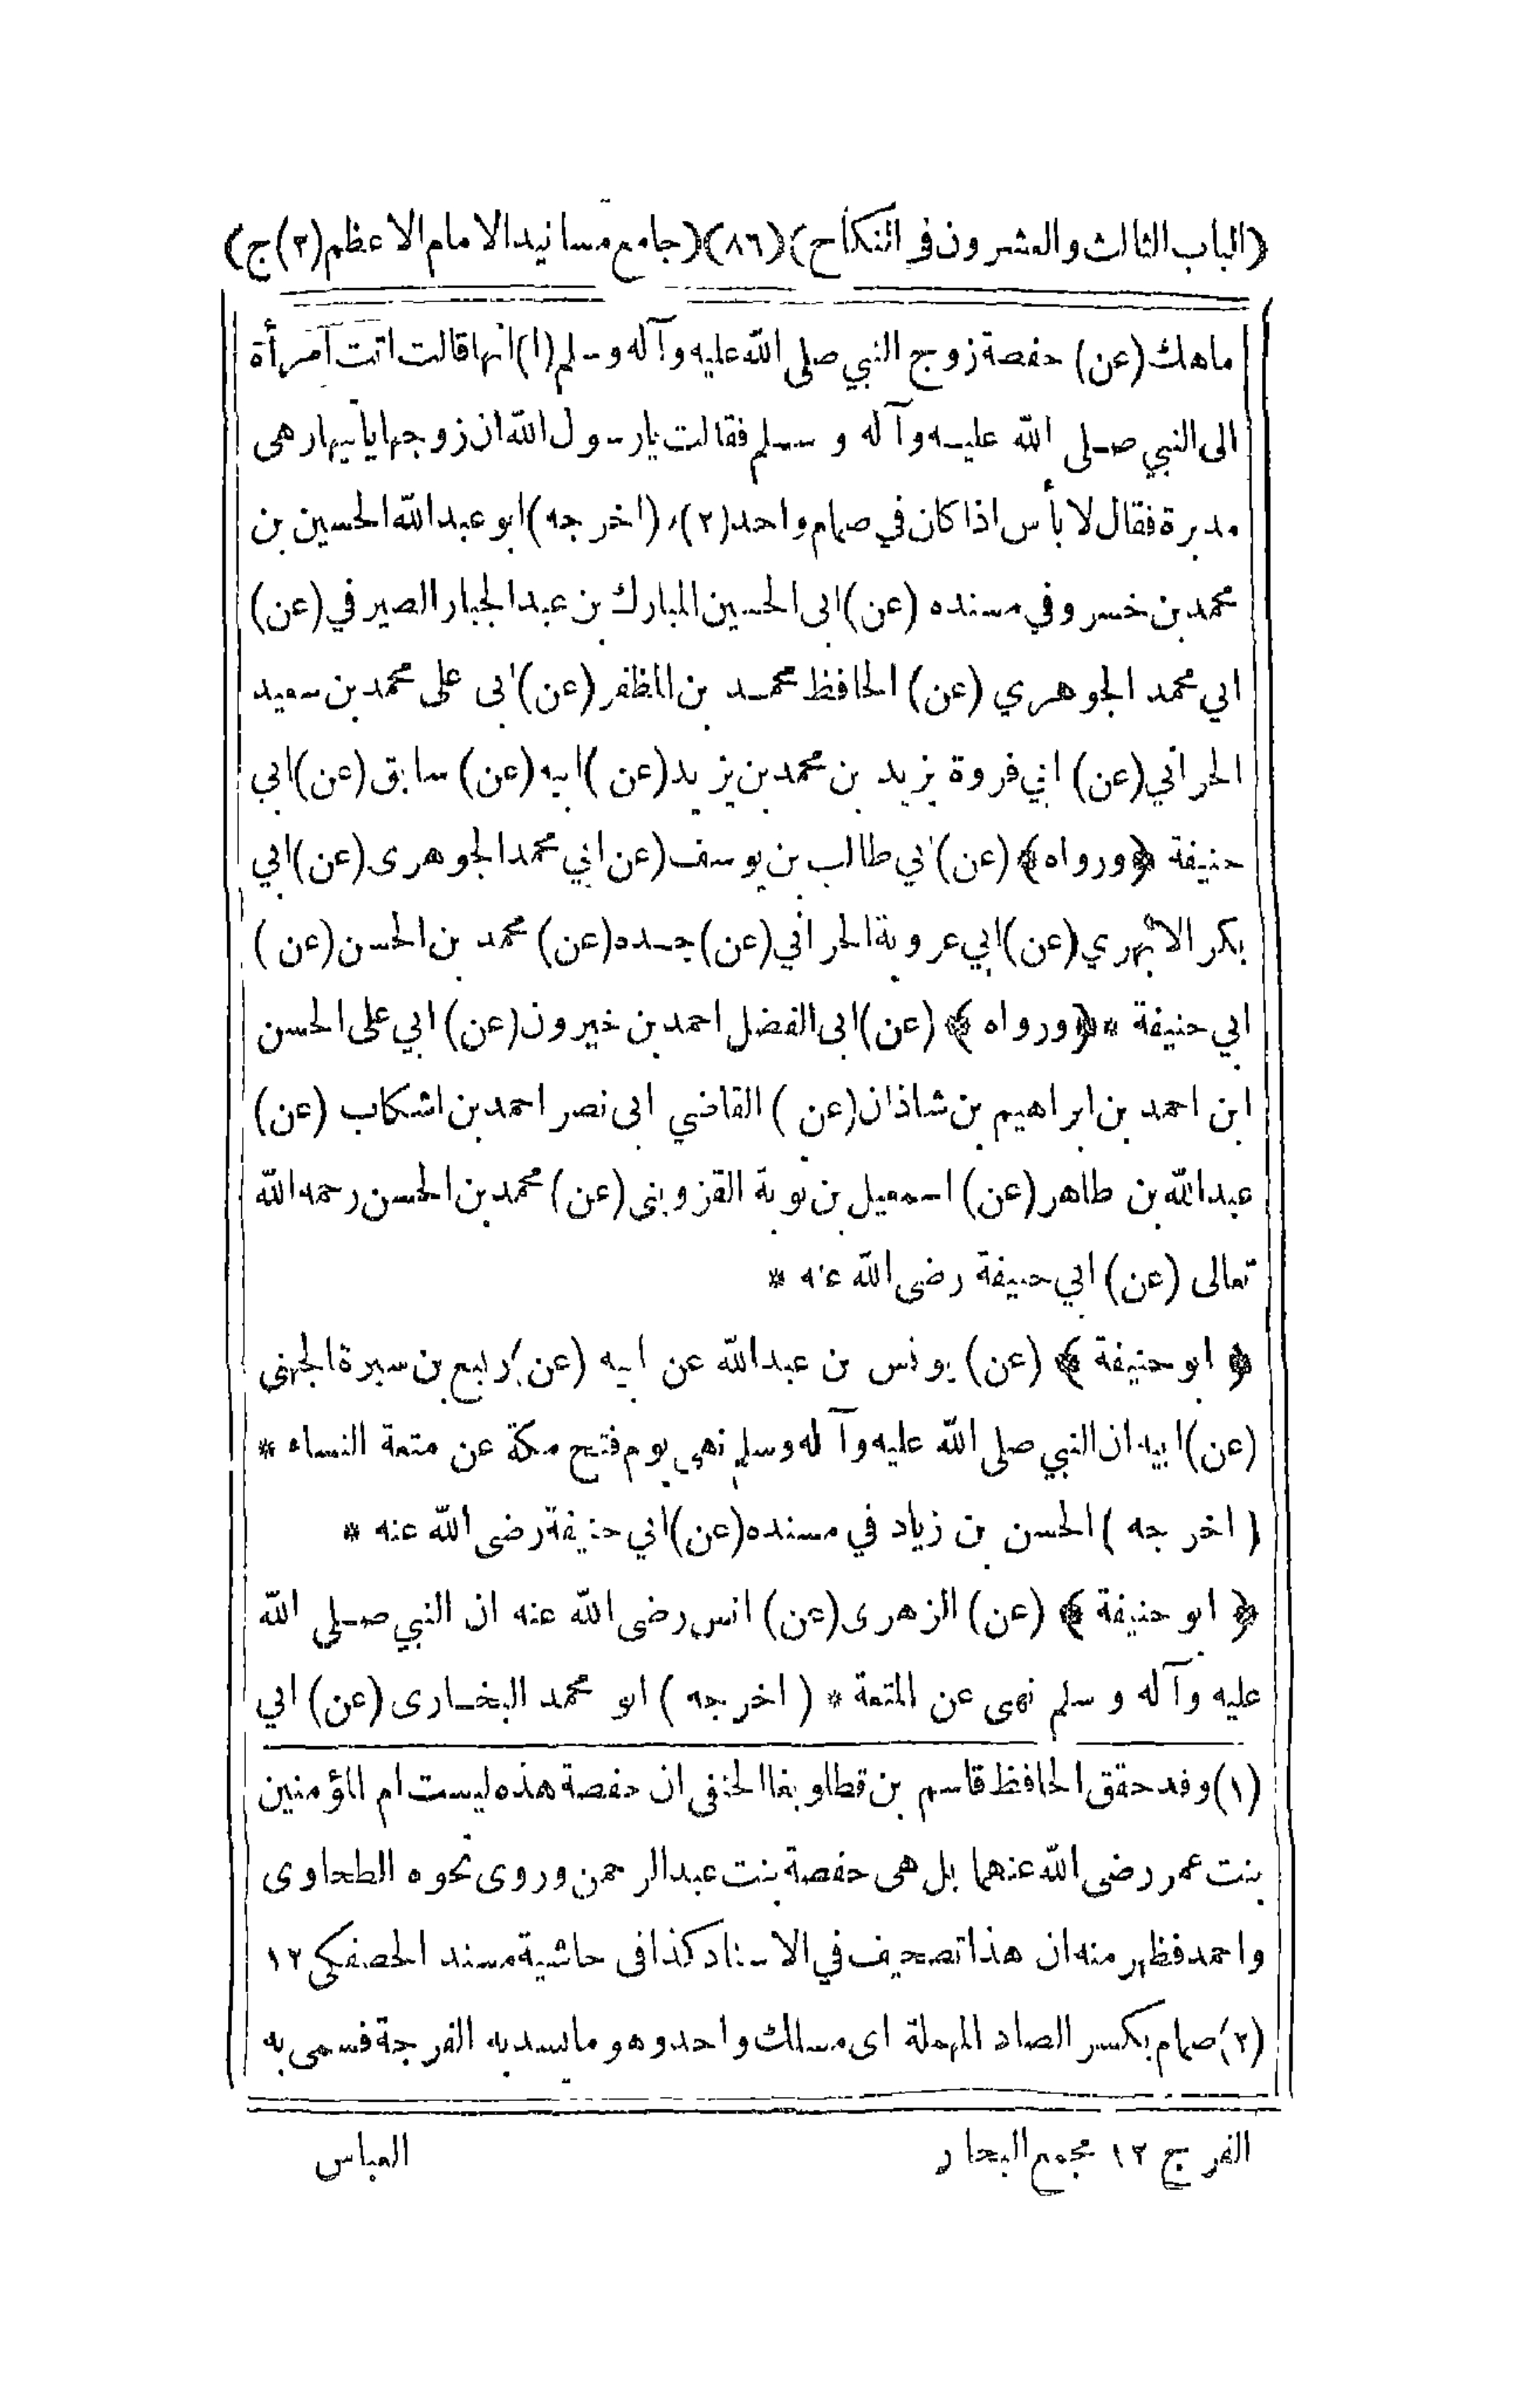 (الباب الثالث والعشرون في النكاح) (٨٦) (جامع مسانيد الامام الاعظم (٢) ج)
ماهك (عن) حفصة زوج النبي صلى الله عليه وآله وسلم (١) انها قالت اتت امرأة
الى النبي صلى الله عليه وآله وسلم فقالت يارسول الله ان زوجها يأتيها وهى
مدبرة فقال لا بأس اذا كان في صمام واحد (٢) (اخرجه) ابو عبد الله الحسين بن
محمد بن خسرو في مسنده (عن) ابى الحسين المبارك بن عبد الجبار الصيرفي (عن)
ابي محمد الجوهري (عن) الحافظ محمد بن المظفر (عن) ابى على محمد بن سعيد
الحراني (عن) ابي فروة يزيد بن محمد بن يزيد (عن) ابيه (عن) سابق (عن) ابي
حنيفة ﴿ورواه﴾ (عن) ابي طالب بن يوسف (عن ابي محمد الجوهرى (عن) ابي
بكر الابهري (عن) ابي عروبة الحراني (عن) جده (عن) محمد بن الحسن (عن)
ابي حنيفة * ﴿ورواه﴾ (عن) ابى الفضل احمد بن خيرون (عن) ابي على الحسن
ابن احمد بن ابراهيم بن شاذان (عن) القاضي ابى نصر احمد بن اشكاب (عن)
عبد الله بن طاهر (عن) اسمعيل بن توبة القزوينى (عن) محمد بن الحسن رحمه الله
تعالى (عن) ابي حنيفة رضى الله عنه *
﴿ ابو حنيفة ﴾ (عن) يونس بن عبد الله عن ابيه (عن) ربيع بن سبرة الجهنى
(عن) ابيه ان النبي صلى الله عليه وآله وسلم نهى يوم فتح مكة عن متعة النساء *
(اخرجه) الحسن بن زياد في مسنده (عن) ابي حنيفة رضى الله عنه *
﴿ ابو حنيفة ﴾ (عن) الزهرى (عن) انس رضى الله عنه ان النبي صلى الله
عليه وآله وسلم نهى عن المتعة * (اخرجه) ابو محمد البخارى (عن) ابي
(١) وقد حقق الحافظ قاسم بن قطلوبغا الحنفى ان حفصة هذه ليست ام المؤمنين
بنت عمر رضى الله عنهما بل هى حفصة بنت عبد الرحمن وروى نحوه الطحاوى
واحمد فظهر منه ان هذا تصحيف في الاسناد كذا فى حاشية مسند الحصفكى ١٢
(٢) صمام بكسر الصاد المهملة اى مسلك واحد وهو ما يسد به الفرجة فسمى به
الفرج ١٢ مجمع البحار
العباس